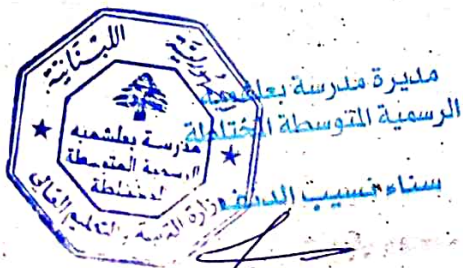 الجمهورية اللبنانية
مدرسة بعلشميه
الرسمية المتوسطة
المختلطة
وزارة التربية والتعليم العالي
مديرة مدرسة بعلشميه
الرسمية المتوسطة المختلطة
سناء نسيب الدنف